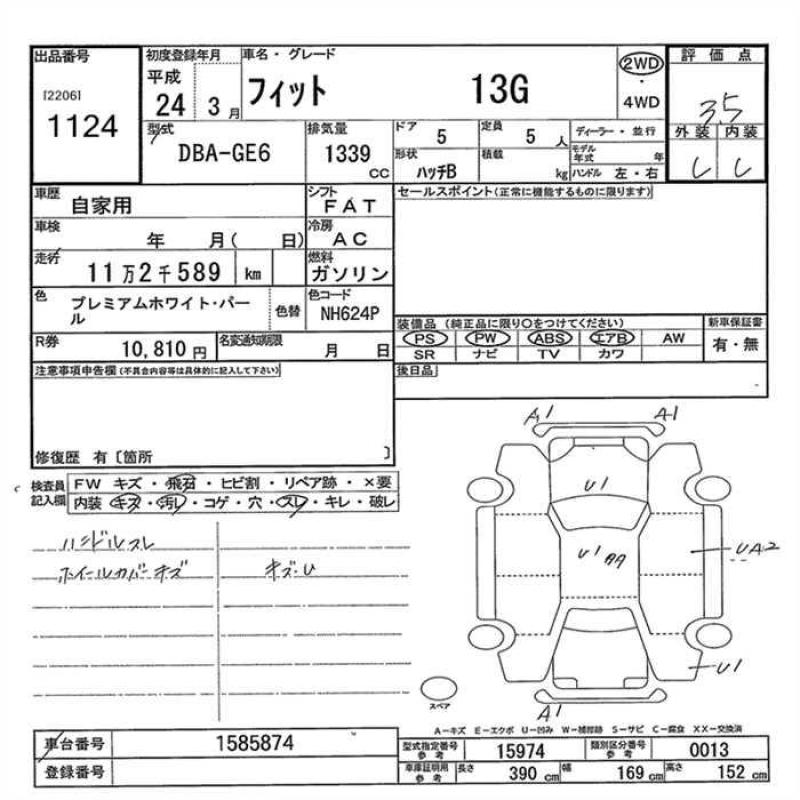 出品番号
[2206]
1124
初度登録年月
平成
24 3 月
車名・グレード
フィット 13G
2WD
・
4WD
評価点
3.5
外装 内装
型式
DBA-GE6
排気量
1339
CC
ドア 5
定員 5 人
形状
ハッチB
積載
kg
ディーラー・並行
モデル
年式 年
ハンドル 左・右
車歴
自家用
シフト
FAT
車検
年 月( 日)
冷房
AC
走行
11万2千589 km
燃料
ガソリン
色
プレミアムホワイト・パー
ル
色替
色コード
NH624P
R券
10,810 円
名変通知期限
月 日
セールスポイント(正常に機能するものに限ります)
装備品 (純正品に限り〇をつけてください)
新車保証書
PS PW ABS エアB AW
SR ナビ TV カワ
有・無
後日品
注意事項申告欄(不具合内容等は具体的に記入して下さい)
修復歴 有〔箇所 〕
検査員
記入欄
FW キズ・飛石・ヒビ割・リペア跡・×要
内装 キズ・汚れ・コゲ・穴・スレ・キレ・破レ
ハンドルスレ
ホイールカバーキズ キズ・U
A1 A1
U1
U1 AA
UA2
U1
A1
スペア
A-キズ E-エクボ U-凹み W-補修跡 S-サビ C-腐食 XX-交換済
車台番号 1585874
登録番号
型式指定番号
参考
15974
類別区分番号
参考
0013
車庫証明用
参考
長さ 390 cm
幅 169 cm
高さ 152 cm